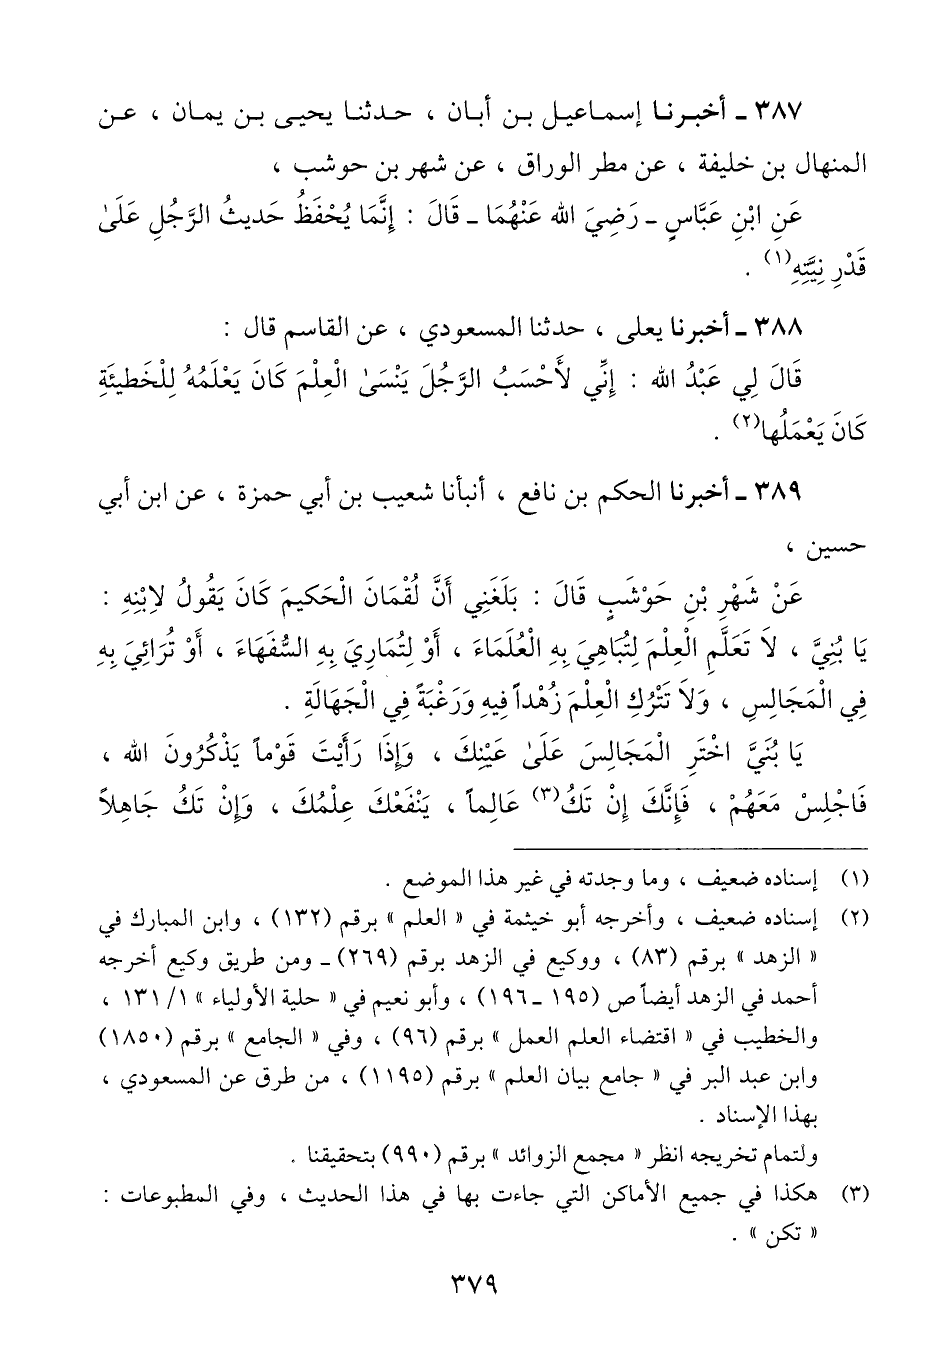 ٣٨٧ ـ أخبرنا إسماعيل بن أبان ، حدثنا يحيى بن يمان ، عن
المنهال بن خليفة ، عن مطر الوراق ، عن شهر بن حوشب ،
عَنِ ابْنِ عَبَّاسٍ ـ رَضِيَ الله عَنْهُمَا ـ قَالَ : إِنَّمَا يُحْفَظُ حَدِيثُ الرَّجُلِ عَلَىٰ
قَدْرِ نِيَّتِهِ(١) .
٣٨٨ ـ أخبرنا يعلى ، حدثنا المسعودي ، عن القاسم قال :
قَالَ لِي عَبْدُ الله : إِنِّي لأَحْسَبُ الرَّجُلَ يَنْسَىٰ الْعِلْمَ كَانَ يَعْلَمُهُ لِلْخَطِيئَةِ
كَانَ يَعْمَلُها(٢) .
٣٨٩ ـ أخبرنا الحكم بن نافع ، أنبأنا شعيب بن أبي حمزة ، عن ابن أبي
حسين ،
عَنْ شَهْرِ بْنِ حَوْشَبٍ قَالَ : بَلَغَنِي أَنَّ لُقْمَانَ الْحَكِيمَ كَانَ يَقُولُ لاِبْنِهِ :
يَا بُنَيَّ ، لاَ تَعَلَّمِ الْعِلْمَ لِتُبَاهِيَ بِهِ الْعُلَمَاءَ ، أَوْ لِتُمَارِيَ بِهِ السُّفَهَاءَ ، أَوْ تُرَائِيَ بِهِ
فِي الْمَجَالِسِ ، وَلاَ تَتْرُكِ الْعِلْمَ زُهْداً فِيهِ وَرَغْبَةً فِي الْجَهَالَةِ .
يَا بُنَيَّ اخْتَرِ الْمَجَالِسَ عَلَىٰ عَيْنِكَ ، وَإِذَا رَأَيْتَ قَوْماً يَذْكُرُونَ الله ،
فَاجْلِسْ مَعَهُمْ ، فَإِنَّكَ إِنْ تَكُ(٣) عَالِماً ، يَنْفَعْكَ عِلْمُكَ ، وَإِنْ تَكُ جَاهِلاً
(١) إسناده ضعيف ، وما وجدته في غير هذا الموضع .
(٢) إسناده ضعيف ، وأخرجه أبو خيثمة في « العلم » برقم (١٣٢) ، وابن المبارك في
« الزهد » برقم (٨٣) ، ووكيع في الزهد برقم (٢٦٩) ـ ومن طريق وكيع أخرجه
أحمد في الزهد أيضاً ص (١٩٥ ـ ١٩٦) ، وأبو نعيم في « حلية الأولياء » ١/ ١٣١ ،
والخطيب في « اقتضاء العلم العمل » برقم (٩٦) ، وفي « الجامع » برقم (١٨٥٠)
وابن عبد البر في « جامع بيان العلم » برقم (١١٩٥) ، من طرق عن المسعودي ،
بهذا الإسناد .
ولتمام تخريجه انظر « مجمع الزوائد » برقم (٩٩٠) بتحقيقنا .
(٣) هكذا في جميع الأماكن التي جاءت بها في هذا الحديث ، وفي المطبوعات :
« تكن » .
٣٧٩